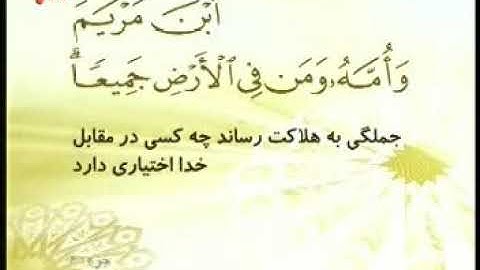 ٱبْنَ مَرْيَمَ
وَأُمَّهُۥ وَمَن فِى ٱلْأَرْضِ جَمِيعًا ۗ
جملگی به هلاکت رساند چه کسی در مقابل
خدا اختیاری دارد